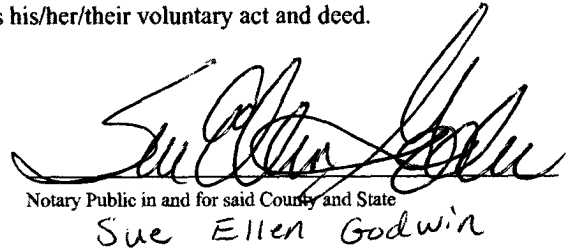 s his/her/their voluntary act and deed.
Sue Ellen Godwin
Notary Public in and for said County and State
Sue Ellen Godwin